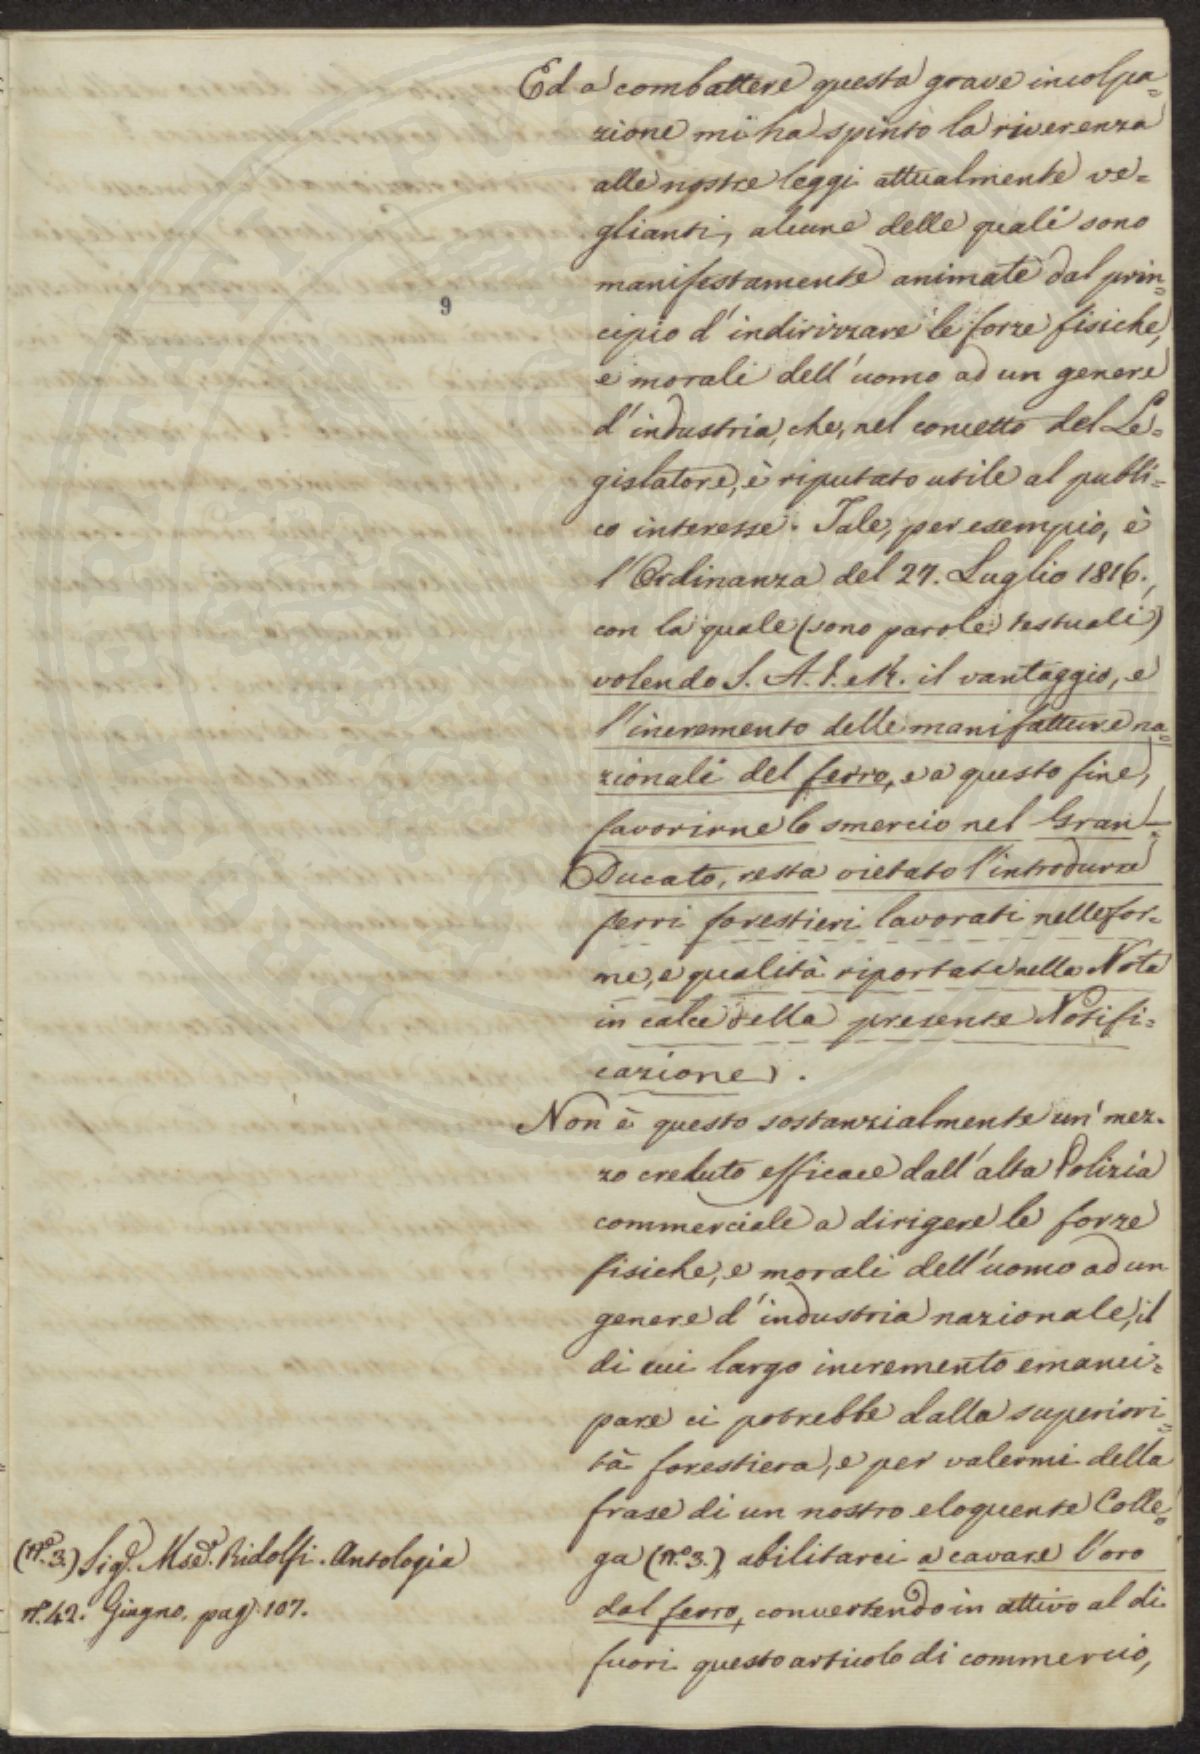 Ed a combattere questa grave incolpa=
zione mi ha spinto la riverenza
alle nostre leggi attualmente ve=
glianti, alcune delle quali sono
manifestamente animate dal prin=
9
cipio d'indirizzare le forze fisiche,
e morali dell'uomo ad un genere
d'industria, che, nel concetto del Le=
gislatore, è riputato utile al publi=
co interesse. Tale, per esempio, è
l'Ordinanza del 27. Luglio 1816.,
con la quale (sono parole testuali)
volendo S. A. I. e R. il vantaggio, e
l'incremento delle manifatture na=
zionali del ferro, e a questo fine,
favorirne lo smercio nel Gran=
Ducato, resta vietato l'introdurre
ferri forestieri lavorati nelle for=
me, e qualità riportate nella Nota
in calce della presente Notifi=
cazione.
Non è questo sostanzialmente un mez=
zo creduto efficace dall'alta Polizia
commerciale a dirigere le forze
fisiche, e morali dell'uomo ad un
genere d'industria nazionale, il
di cui largo incremento emanci=
pare ci potrebbe dalla superiori=
tà forestiera, e per valermi della
frase di un nostro eloquente Colle=
ga (N.º 3.), abilitarci a cavare l'oro
dal ferro, convertendo in attivo al di
fuori questo articolo di commercio,
(N.º 3.) Sig.r Mse. Ridolfi. Antologia
N.º 42. Giugno. pag. 107.